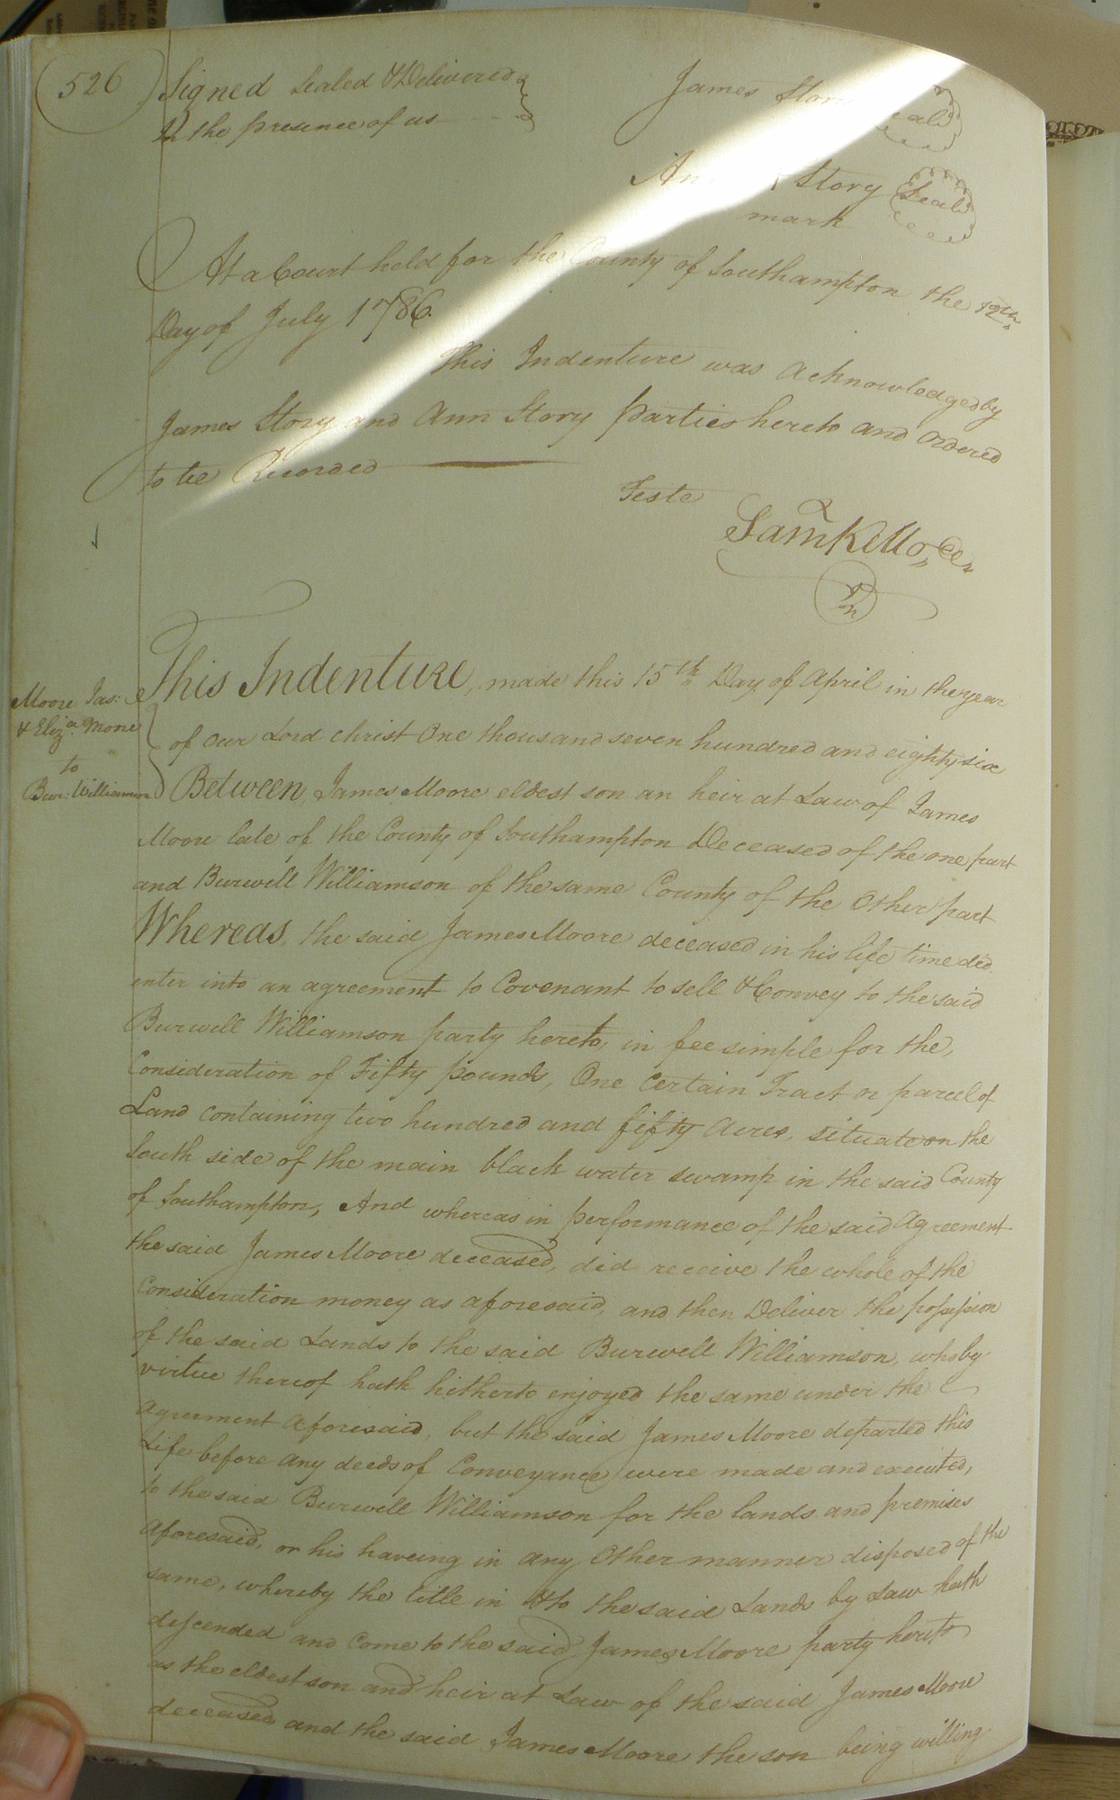 526
Signed Sealed & Delivered
In the presence of us
James Stor
Seal
An Story Seal
mark
At a Court held for the County of Southampton the 12th
Day of July 1786.
This Indenture was Acknowledged by
James Story and Ann Story Parties hereto and Ordered
to be Recorded
Teste
Saml Kello, CC,
Moore Jas:
& Eliza Moore
to
Bur: Williamson
This Indenture, made this 15th Day of April in the year
of our Lord Christ One thousand seven hundred and eighty six
Between James Moore eldest son an heir at Law of James
Moore late of the County of Southampton Deceased of the one part
and Burwell Williamson of the same County of the Other part
Whereas, the said James Moore deceased in his life time did
enter into an agreement to Covenant to sell & Convey to the said
Burwell Williamson party hereto, in fee simple for the,
Consideration of Fifty pounds, One Certain Tract or parcel of
Land containing two hundred and fifty Acres, situate on the
South side of the main black water swamp in the said County
of Southampton, And whereas in performance of the said Agreement
the said James Moore deceased, did receive the whole of the
Consideration money as aforesaid, and then Deliver the possession
of the said Lands to the said Burwell Williamson, who by
virtue thereof hath hitherto enjoyed the same under the
Agreement Aforesaid, but the said James Moore departed this
Life before any deeds of Conveyance were made and executed,
to the said Burwell Williamson for the lands and premises
Aforesaid, or his haveing in any Other manner disposed of the
same, whereby the title in & to the said Lands by Law hath
descended and Come to the said James Moore party hereto
as the eldest son and heir at Law of the said James Moore
deceased and the said James Moore the son being willing